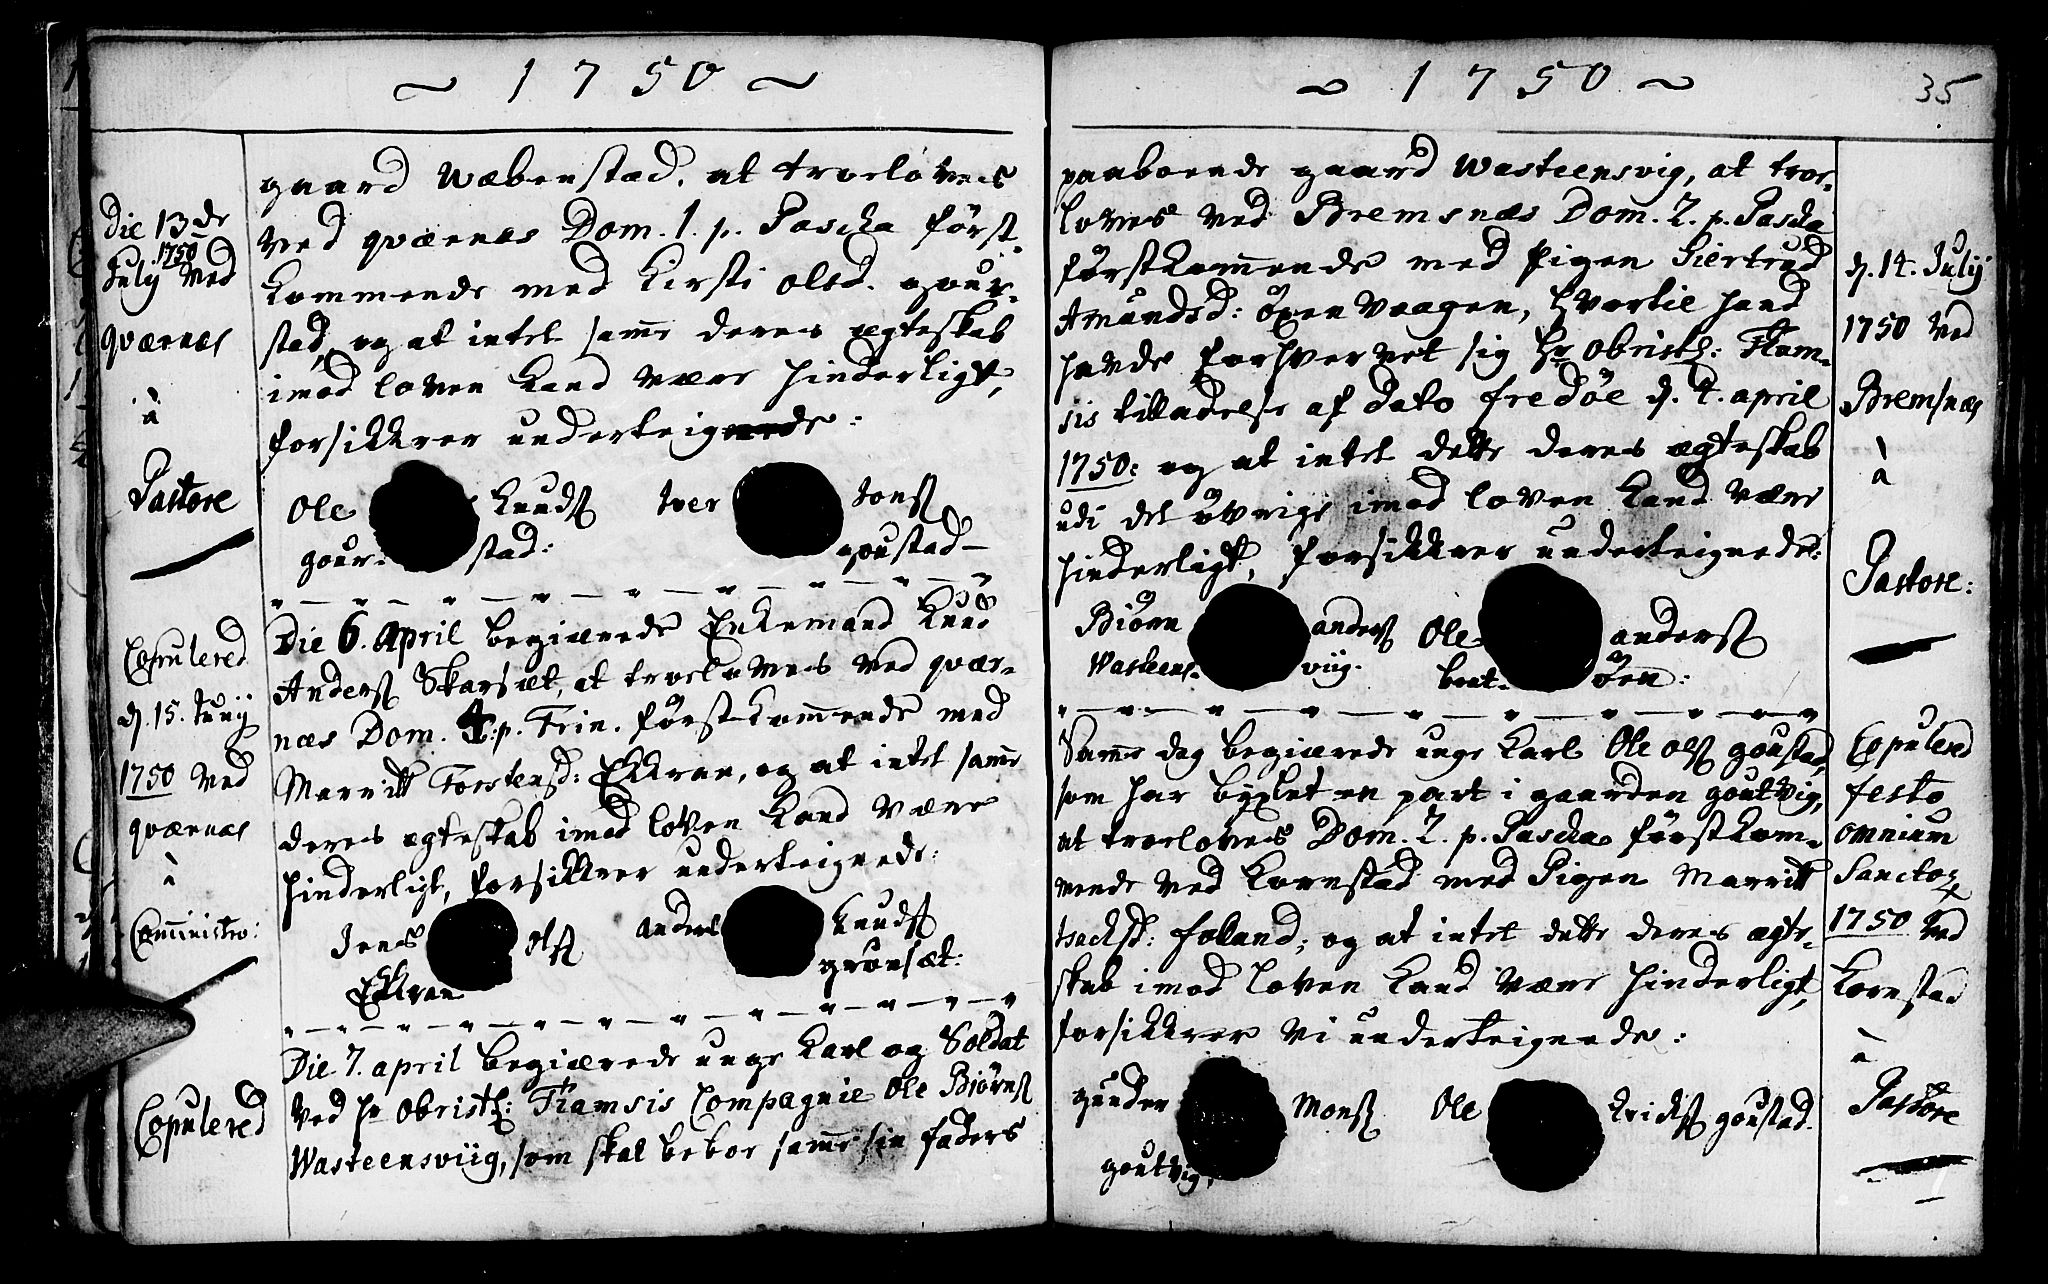 ~ 1750 ~
Die 13de
July 1750 ved
qværnæs
à
Pastore
Copulered
d. 15. Junij
1750 ved
qværnæs
à
Comministro:
Copulered
gaard Wæbenstad, at troeloves
ved qværnæs Dom. 1. p. Pascha först-
kommende med Kirsti Olsd. gour-
stad, og at intet samme deres ægteskab
imod loven kand være hinderligt,
forsikkrer underteignede:
Ole Knuds. Iver Jons.
gour- stad: goustad
Die 6. April begiærede Enkemand Knud
Anders. Skarsæt, at troeloves ved qvær-
næs Dom. 4. p. Trin. förstkommende med
Marritt Torstensd: Ekkran, og at intet samme
deres ægteskab imod loven kand være
hinderligt, forsikkrer underteignede:
Jens Ols. Anders Knuds.
Ekkran grönsæt:
Die 7. april begiærede unge Karl og Soldat
ved Hr Obristl: Tramsis Compagnie Ole Biörns.
Wasteensviig, som skal beboe samme sin faders
~ 1750 ~ 35
paaboende gaard Wasteensvig, at troe-
loves ved Bremsnæs Dom. 2. p. Pascha
förstkommende med Pigen Siertrud
Amundsd: öxenvaagen, hvortil hand
havde forhvervet sig Hr Obristl: Tram-
sis tilladelse af dato fredöe d. 4. april
1750: og at intet dette deres ægteskab
udi det övrige imod loven kand være
hinderligt, forsikkrer underteignede:
Biörn Anders. Ole Anders.
Wasteens- viig. beat- öen:
Samme dag begiærede unge Karl Ole Ols. goustad,
som har byxlet en part i gaarden goutvig,
at troeloves Dom. 2. p. Pascha förstkom-
mende ved Kornstad med Pigen Marritt
Isachsd: foland, og at intet dette deres ægte-
skab imod loven kand være hinderligt,
forsikkrer vi underteignede:
gunder Mons. Ole Erichs. goustad.
goutvig,
d. 14. July
1750 ved
Bremsnæs
à
Pastore:
Copulered
festo
omnium
Sanctor
1750 ved
Kornstad
à
Pastore